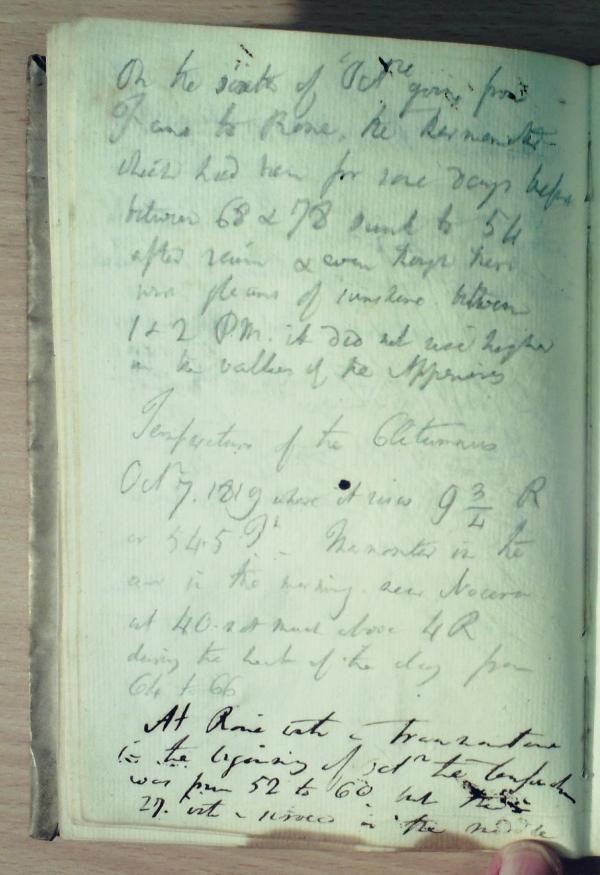 On the sixth of Oct.re going from
Fano to Rome, the thermometer
which had been for some days before
between 68 & 78 sunk to 54
after rain & even though there
were gleams of sunshine between
1 & 2 P.M. it did not rise higher
in the vallies of the Appenines
Temperature of the Clitumnus
Oct 7. 1819 where it rises 9 3/4 R
or 54.5 Ft. Thermometer in the
air in the morning near Nocera
at 40. not much above 4 R
during the heat of the day from
64 to 66
At Rome with a tramontane
in the beginning of Oct the temperature
was from 52 to 60 but
27. with a siroco in the middle